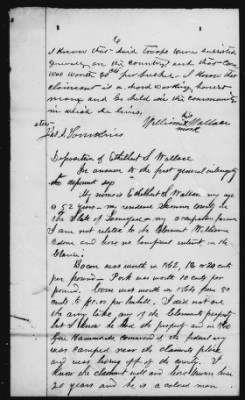 6
I know that said troops were
on the country and that corn
was worth 80 cts per bushel. I know that
claimant is a hard working honest
man and is held in the community
in which he lives.
his
William Wallace
mark
attest
Jas. A. Tomkins
Deposition of Ethelbert S. Wallace
In answer to the first general interrogatory
the deponent says
My name is Ethelbert S. Wallace my age
is 52 years - my residence Sumner county in
the State of Tennessee - my occupation farmer
I am not related to the Claimant William
and have no beneficial interest in the
Claim.
Bacon was worth in 186 18 to 20 cts
per pound - Pork was worth 10 cents per
pound. Corn was worth in 1864 from 80
cents to $1.00 per bushel. I did not see
the army take any of the Claimants property
but I know he had the property and in
Gen command of the federal army
was camped near the claimants place
and was living off of the country. I
know the claimant well and have known him
20 years and he is a colored man